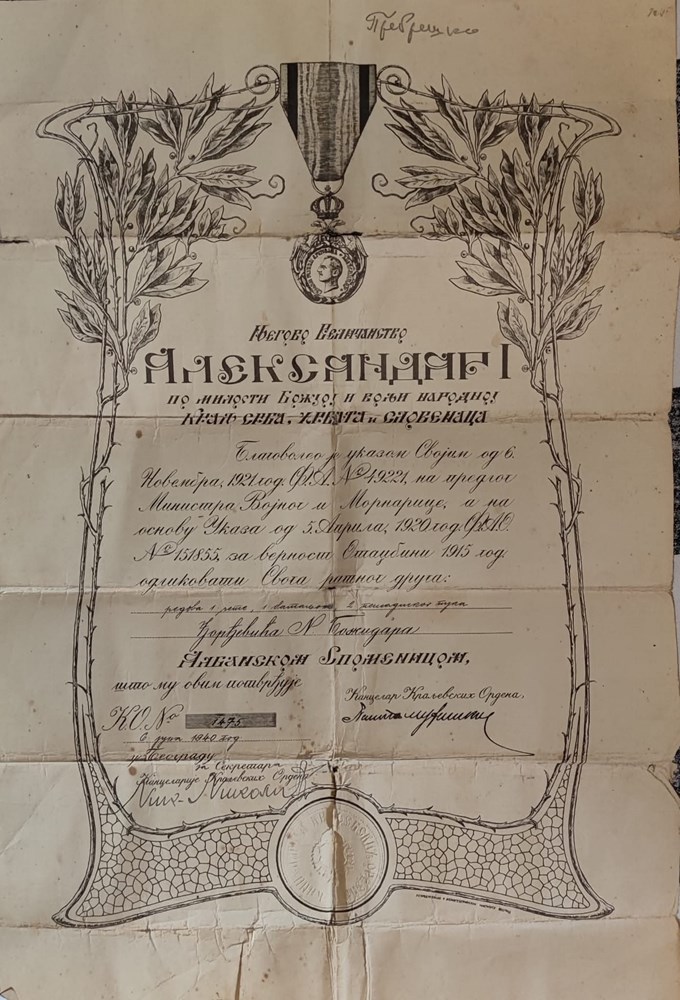 Његово Величанство
АЛЕКСАНДАР I
по милости Божјој и вољи народној
Краљ Срба, Хрвата и Словенаца
Благоволео је указом Својим од 6.
Новембра, 1921 год. ФАО. № 49221, на предлог
Министра Војног и Морнарице, и на
основу Указа од 5. Априла, 1920 год. ФАО.
№ 151855, за верност Отаџбини 1915 год.
одликовати Свога ратног друга:
редова 1 чете, 1 батаљона 2 пешадиског пука
Ђорђевића Н. Божидара
Албанском Споменицом,
што му овим потврђује
Канцелар Краљевских Ордена,
К.О. № 1475
6 јуна 1940 год
у Београду
за Секретара
Канцеларије Краљевских Ордена